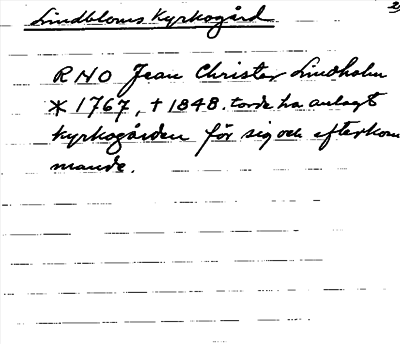 Lindbloms Kyrkogård
2
RNO Jean Christer Lindholm
* 1767, + 1848. torde ha anlagt
kyrkogården för sig och efterkom
mande.